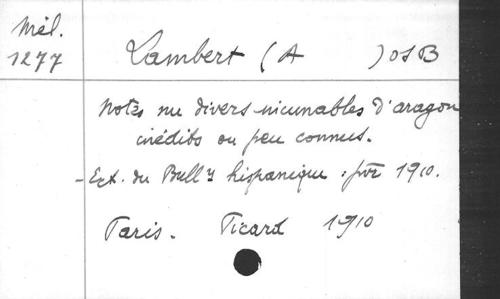 Mél.
1277
Lambert (A ) OSB
Notes sur divers incunables d'aragon
inédits ou peu connus.
- Ext. du Bull hispanique : 1910.
Paris. Picard 1910